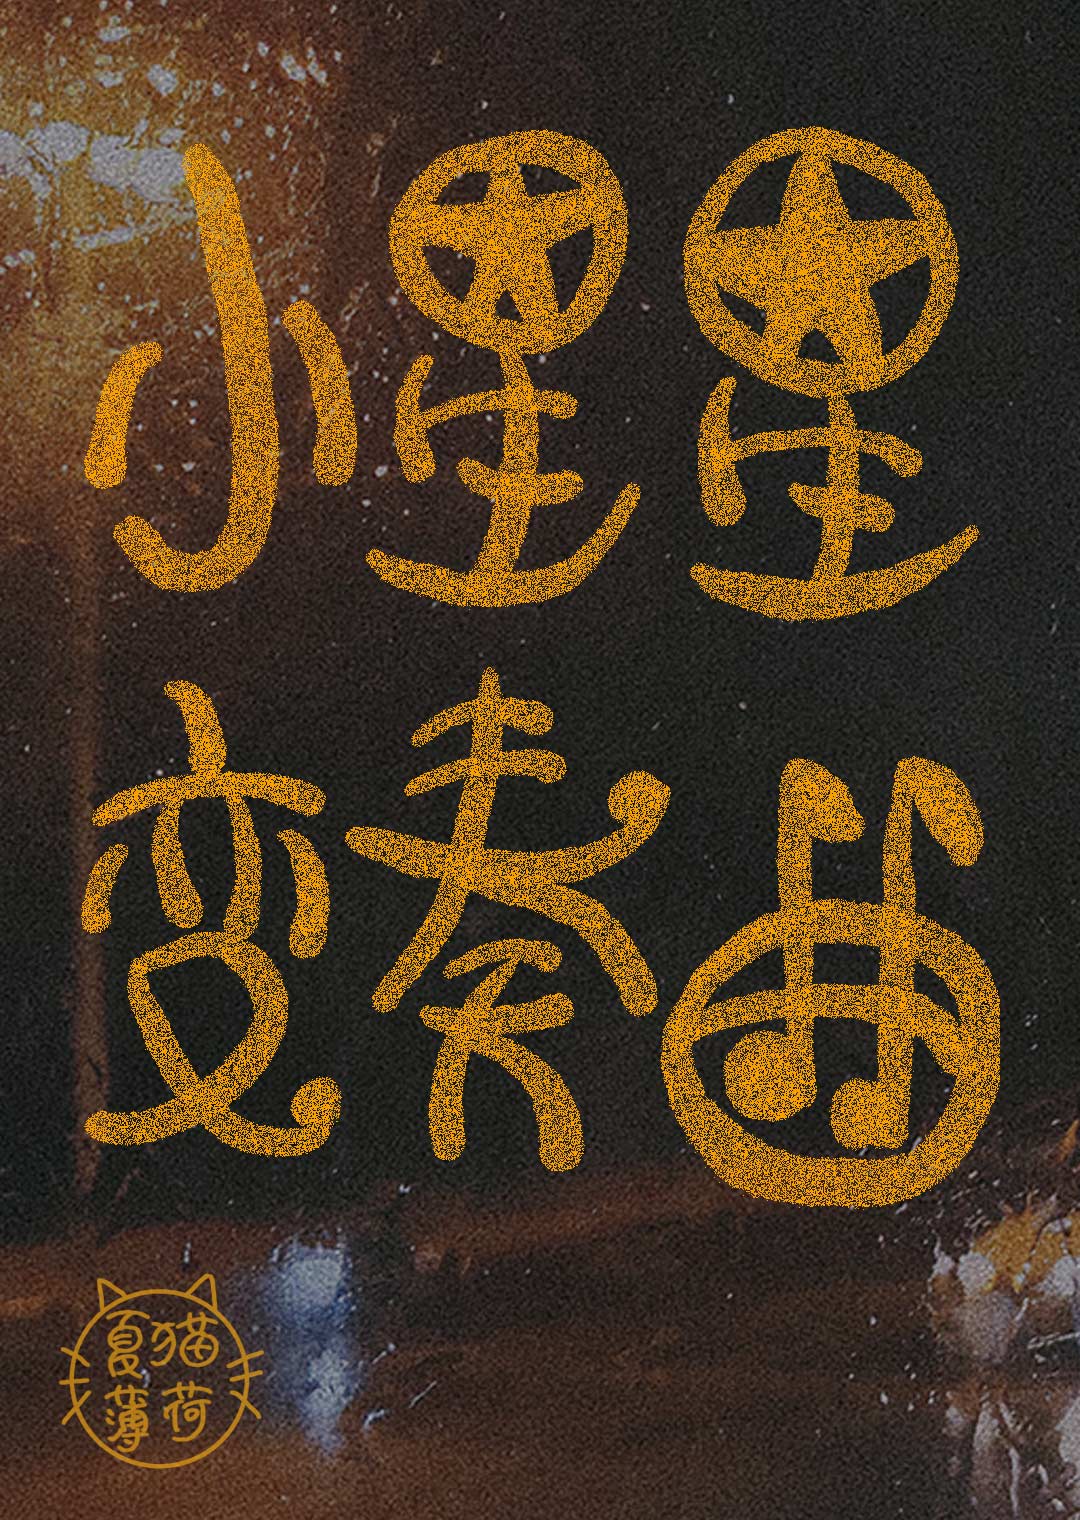 小星星
变奏曲
夏猫
薄荷